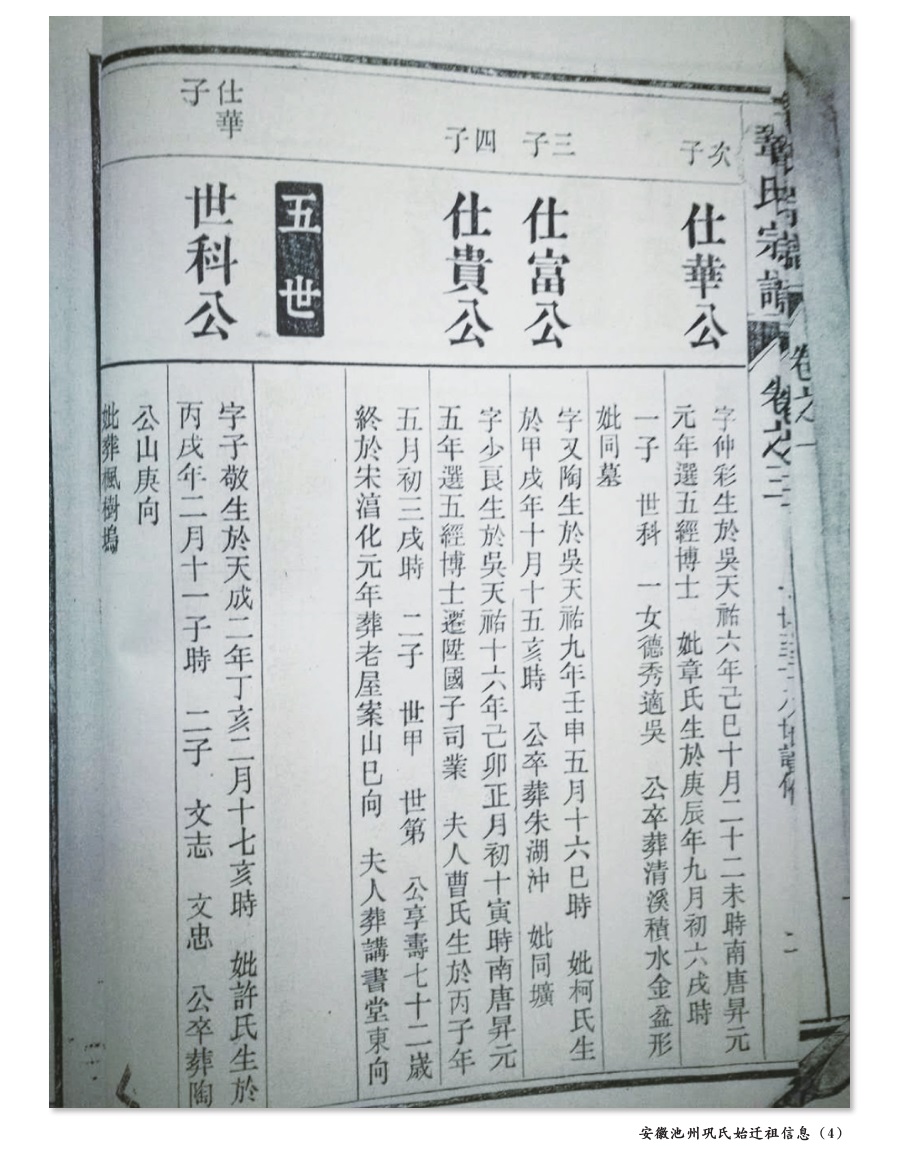 鞏氏宗譜
卷之一
卷之三
次子
仕華公
字仲彩生於吳天祐六年己巳十月二十二未時南唐昇元
元年選五經博士 妣章氏生於庚辰年九月初六戌時
一子 世科 一女德秀適吳 公卒葬清溪積水金盆形
妣同墓
三子
仕富公
字又陶生於吳天祐九年壬申五月十六巳時 妣柯氏生
於甲戌年十月十五亥時 公卒葬朱湖沖 妣同壙
四子
仕貴公
字少良生於吳天祐十六年己卯正月初十寅時南唐昇元
五年選五經博士遷陞國子司業 夫人曹氏生於丙子年
五月初三戌時 二子 世甲 世第 公享壽七十二歲
終於宋湻化元年葬老屋案山巳向 夫人葬講書堂東向
五世
仕華子
世科公
字子敬生於天成二年丁亥二月十七亥時 妣許氏生於
丙戌年二月十一子時 二子 文志 文忠 公卒葬陶
公山庚向
妣葬楓樹塢
安徽池州巩氏始迁祖信息（4）